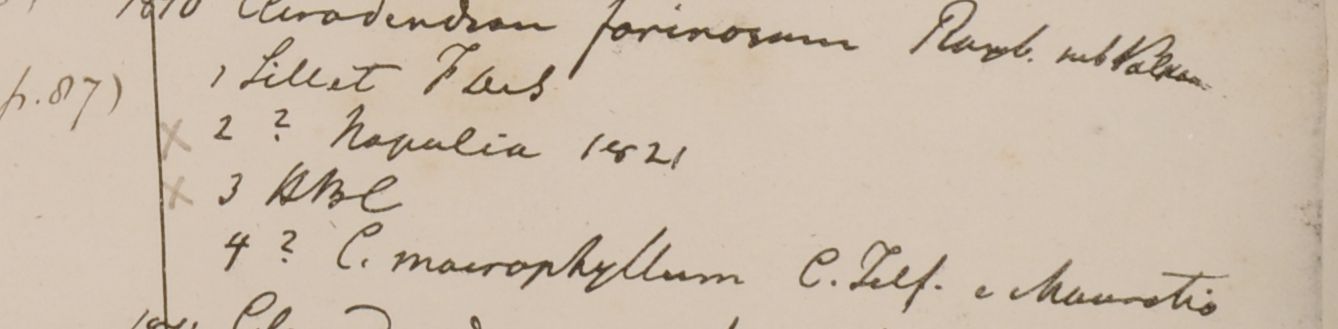 1810 Clerodendron farinosum Roxb. sub Volkam
p.87)
1 Sillet F DeS
2 ? Napalia 1821
3 HBC
4 ? C. macrophyllum C. Telf. e Mauratio